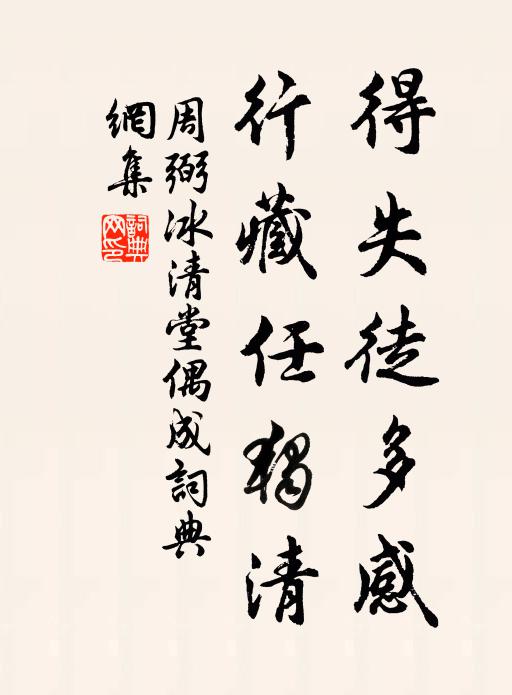 得失徒多感
行藏任獨清
周弼冰清堂偶成詞典
網集
詞典
网印